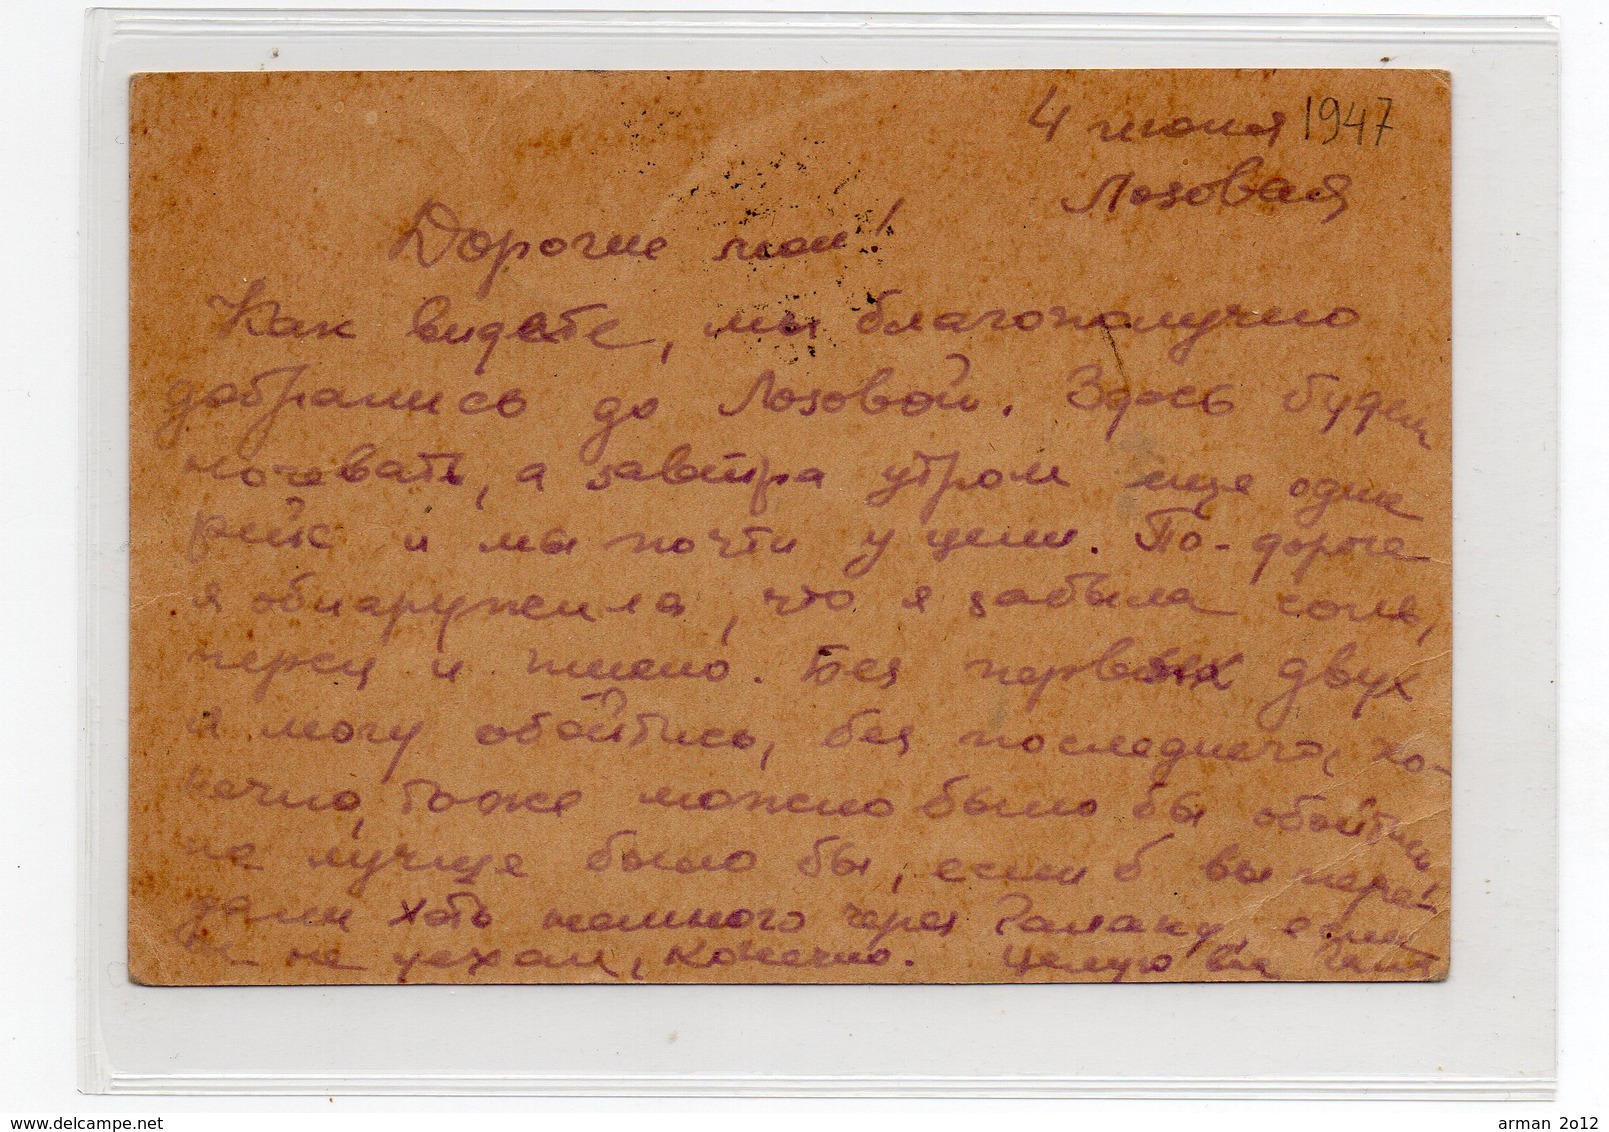 4 июня 1947
Лозовая
Дорогие мои!
Как видете, мы благополучно
добрались до Лозовой. Здесь будем
ночевать, а завтра утром еще один
рейс и мы почти у цели. По-дороге
я обнаружила, что я забыла соль,
перец и пшено. Без первых двух
я могу обойтись, без последнего, ко-
нечно, тоже можно было бы обойтись
но лучше было бы, если б вы пере-
дали хоть немного через Галочку, если
не уехал, конечно. Целую вас
delcampe.net
arman 2012